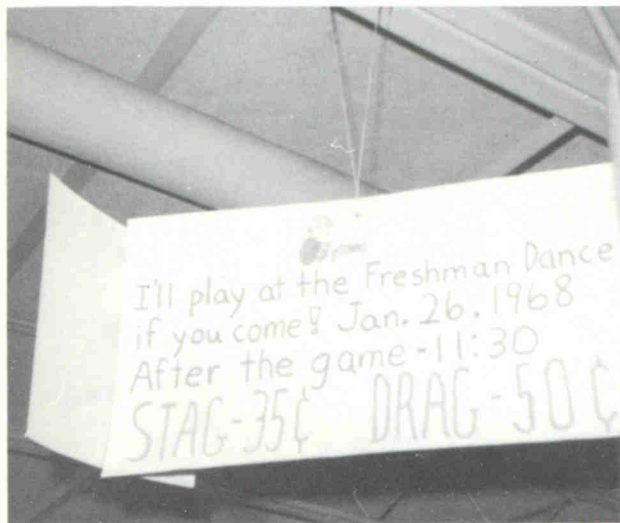 I'll play at the Freshman Dance
if you come! Jan. 26. 1968
After the game - 11:30
STAG - 35¢ DRAG - 50¢